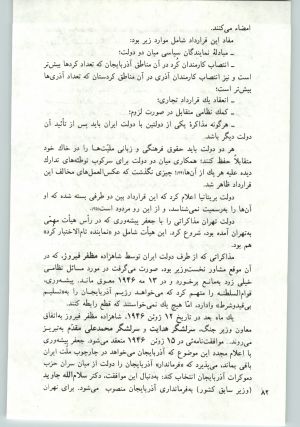 امضاء می‌کنند.
مفاد این قرارداد شامل موارد زیر بود:
ـ مبادلهٔ نمایندگان سیاسی میان دو دولت؛
ـ انتصاب کارمندان کُرد در آن مناطق آذربایجان که تعداد کردها بیش‌تر
است و نیز انتصاب کارمندان آذری در آن مناطق کردستان که تعداد آذری‌ها
بیش‌تر است؛
ـ انعقاد یك قرارداد تجاری؛
ـ کمك نظامی متقابل در صورت لزوم؛
ـ هرگونه مذاکرهٔ یکی از دولتین با دولت ایران باید پس از تأئید آن
دولت دیگر باشد.
هر دو دولت باید حقوق فرهنگی و زبانی ملیّت‌ها را در خاك خود
متقابلاً حفظ کنند؛ همکاری میان دو دولت برای سرکوب توطئه‌های تدارك
دیده علیه هر یك از آن‌ها چیزی نگذشت که عکس‌العمل‌های مخالف این
قرارداد ظاهر شد.
دولت بریتانیا اعلام کرد که این قرارداد بین دو طرفی بسته شده که او
آن‌ها را به‌رسمیت نمی‌شناسد، و از این رو مردود است
دولت تهران مذاکراتی را با جعفر پیشه‌وری که در رأس هیأت مهمّی
به‌تهران آمده بود، شروع کرد. این هیأت شامل دو «نماینده تام‌الاختیار کرده
هم بود.
مذاکراتی که از طرف دولت ایران توسط شاهزاده مظفر فیروز، که در
آن موقع مشاور نخست‌وزیر بود، صورت می‌گرفت در مورد مسائل نظامی
خیلی زود به‌مانع برخورد و در ۱۳ مه ۱۹۴۶ معوق ماند. پیشه‌وری،
قوام‌السلطنه را متهم کرد که می‌خواهد رژیم آذربایجان را به‌تسلیم
بی‌قیدوشرط» وادارد، امّا هیچ‌یك نمی‌خواستند که قطع رابطه کنند.
یك ماه بعد در تاریخ ۱۲ ژوئن ۱۹۴۶، شاهزاده مظفر فیروز به‌اتفاق
معاون وزیر جنگ، سرلشگر هدایت و سرلشگر محمدعلی مقدم به‌تبریز
می‌روند. موافقت‌نامه‌ئی در ۱۵ ژوئن ۱۹۴۶ منعقد می‌شود. جعفر پیشه‌وری
با اعلام مجدد این موضوع که آذربایجان می‌خواهد در چارچوب ملّت ایران
باقی بماند، می‌پذیرد که «فرماندار» آذربایجان را دولت از میان سران حزب
دموکرات آذربایجان انتخاب کند؛ به‌دنبال این موافقت، دکتر سلام‌الله جاوید
(وزیر سابق کشور) به‌فرمانداری آذربایجان منصوب می‌شود. برای تهران
۸۲